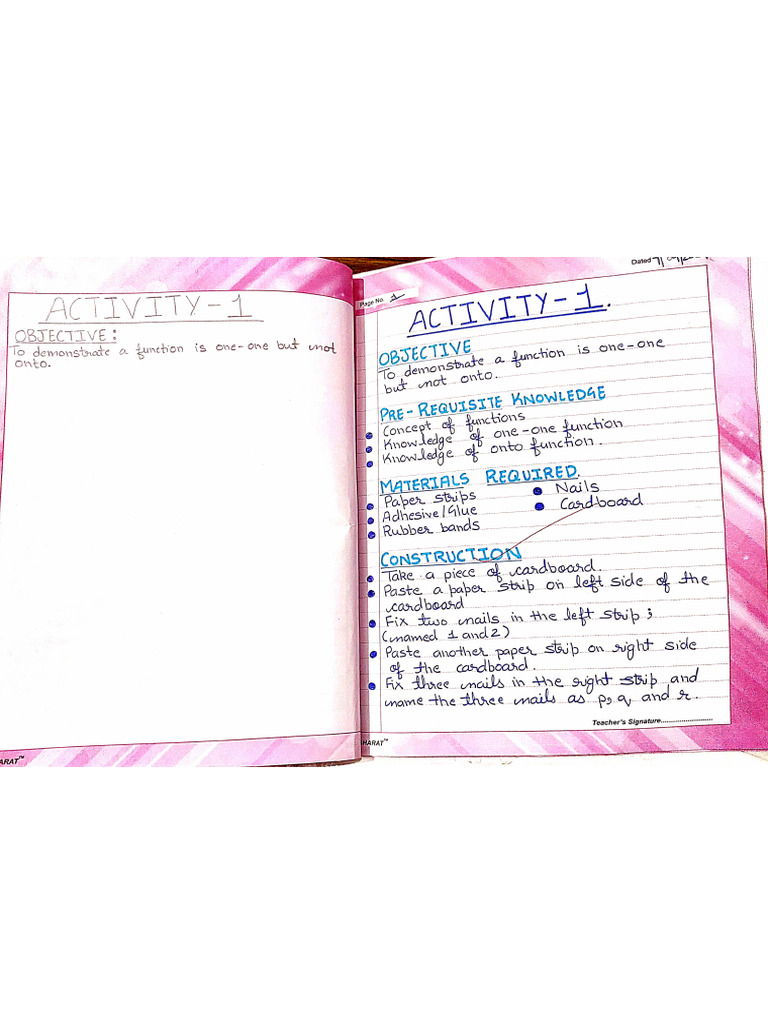 ACTIVITY-1
OBJECTIVE:
To demonstrate a function is one-one but not
onto.
ARAT™
Dated
Page No. 1
ACTIVITY-1.
OBJECTIVE
To demonstrate a function is one-one
but not onto.
PRE-REQUISITE KNOWLEDGE
Concept of functions
Knowledge of one-one function
Knowledge of onto function.
MATERIALS REQUIRED.
Paper strips
Adhesive/Glue
Rubber bands
Nails
Cardboard
CONSTRUCTION
Take a piece of cardboard.
Paste a paper strip on left side of the
cardboard
Fix two nails in the left strip;
(named 1 and 2)
Paste another paper strip on right side
of the cardboard.
Fix three nails in the right strip and
name the three nails as p, q, and r.
Teacher's Signature..........................
HARAT™